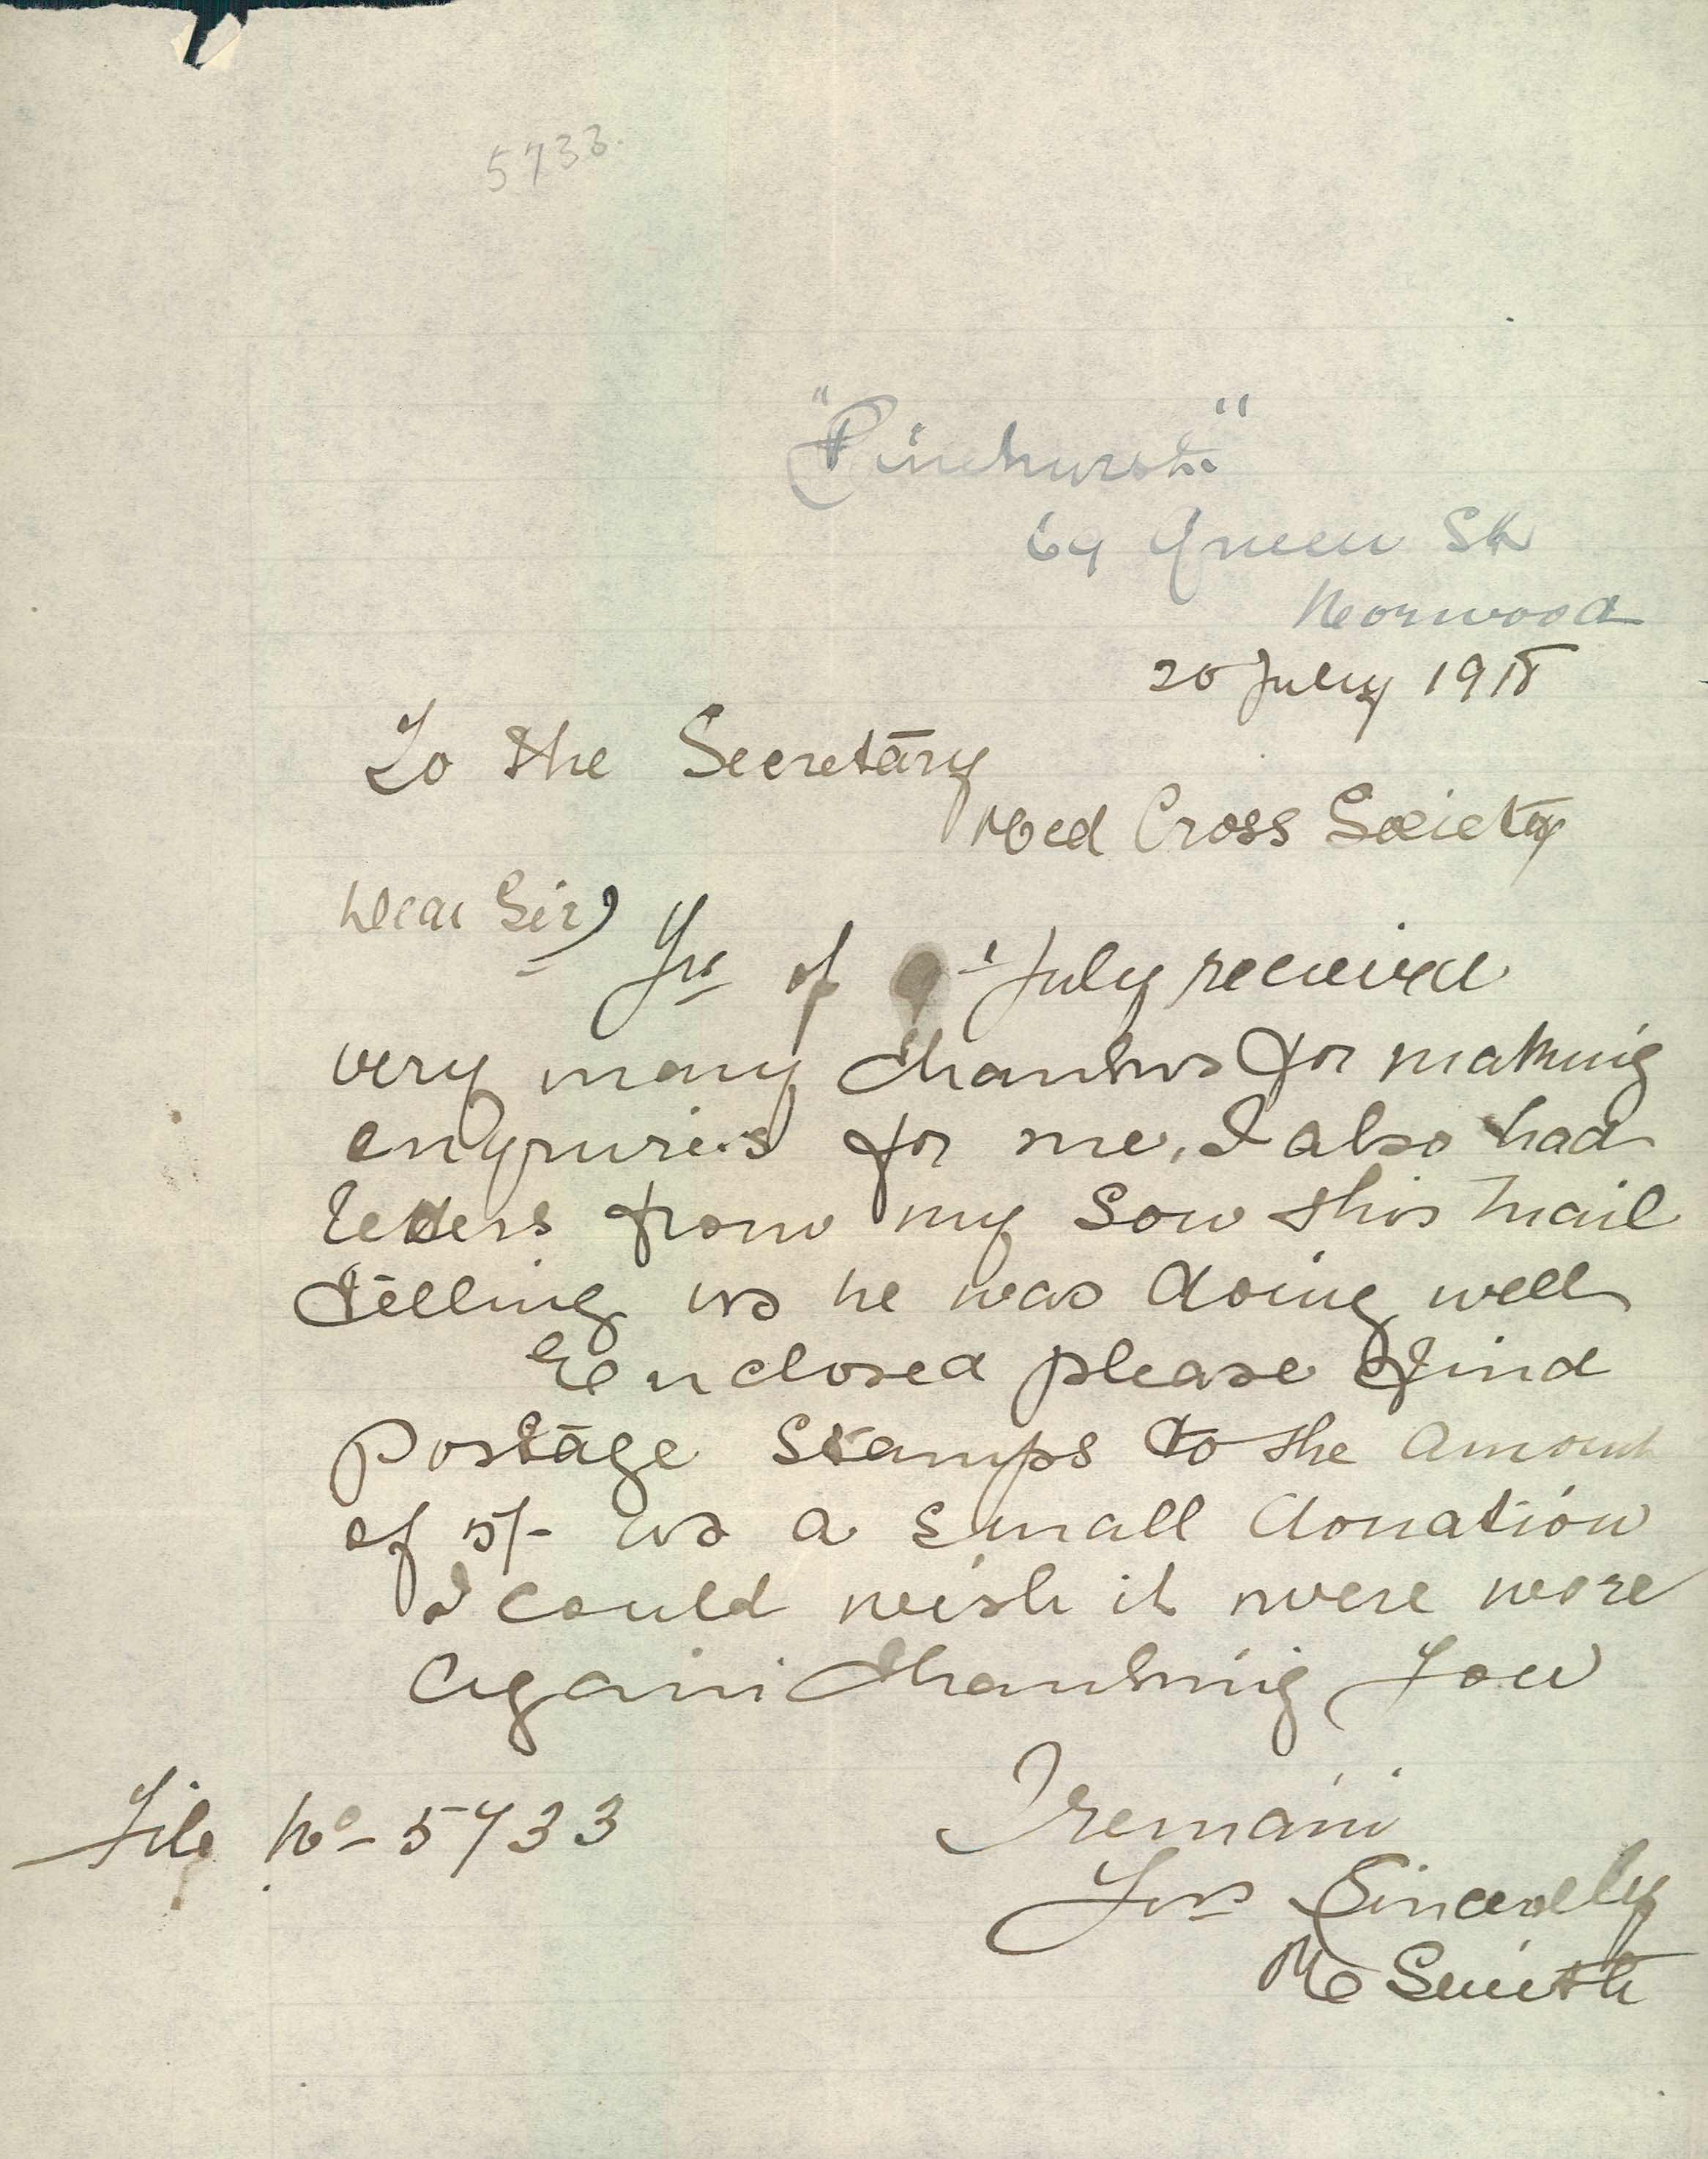 5733.
"Pinehurst"
69 Queen St
Norwood
20 July 1918
To the Secretary
Red Cross Society
Dear Sir
Yrs of 9th July received
very many thanks for making
enquiries for me, I also had
letters from my Son this Mail
telling us he was doing well
Enclosed please find
Postage Stamps to the amount
of 5/- as a small donation
I could wish it were more
Again thanking You
I remain
Yrs Sincerely
M Smith
File No 5733